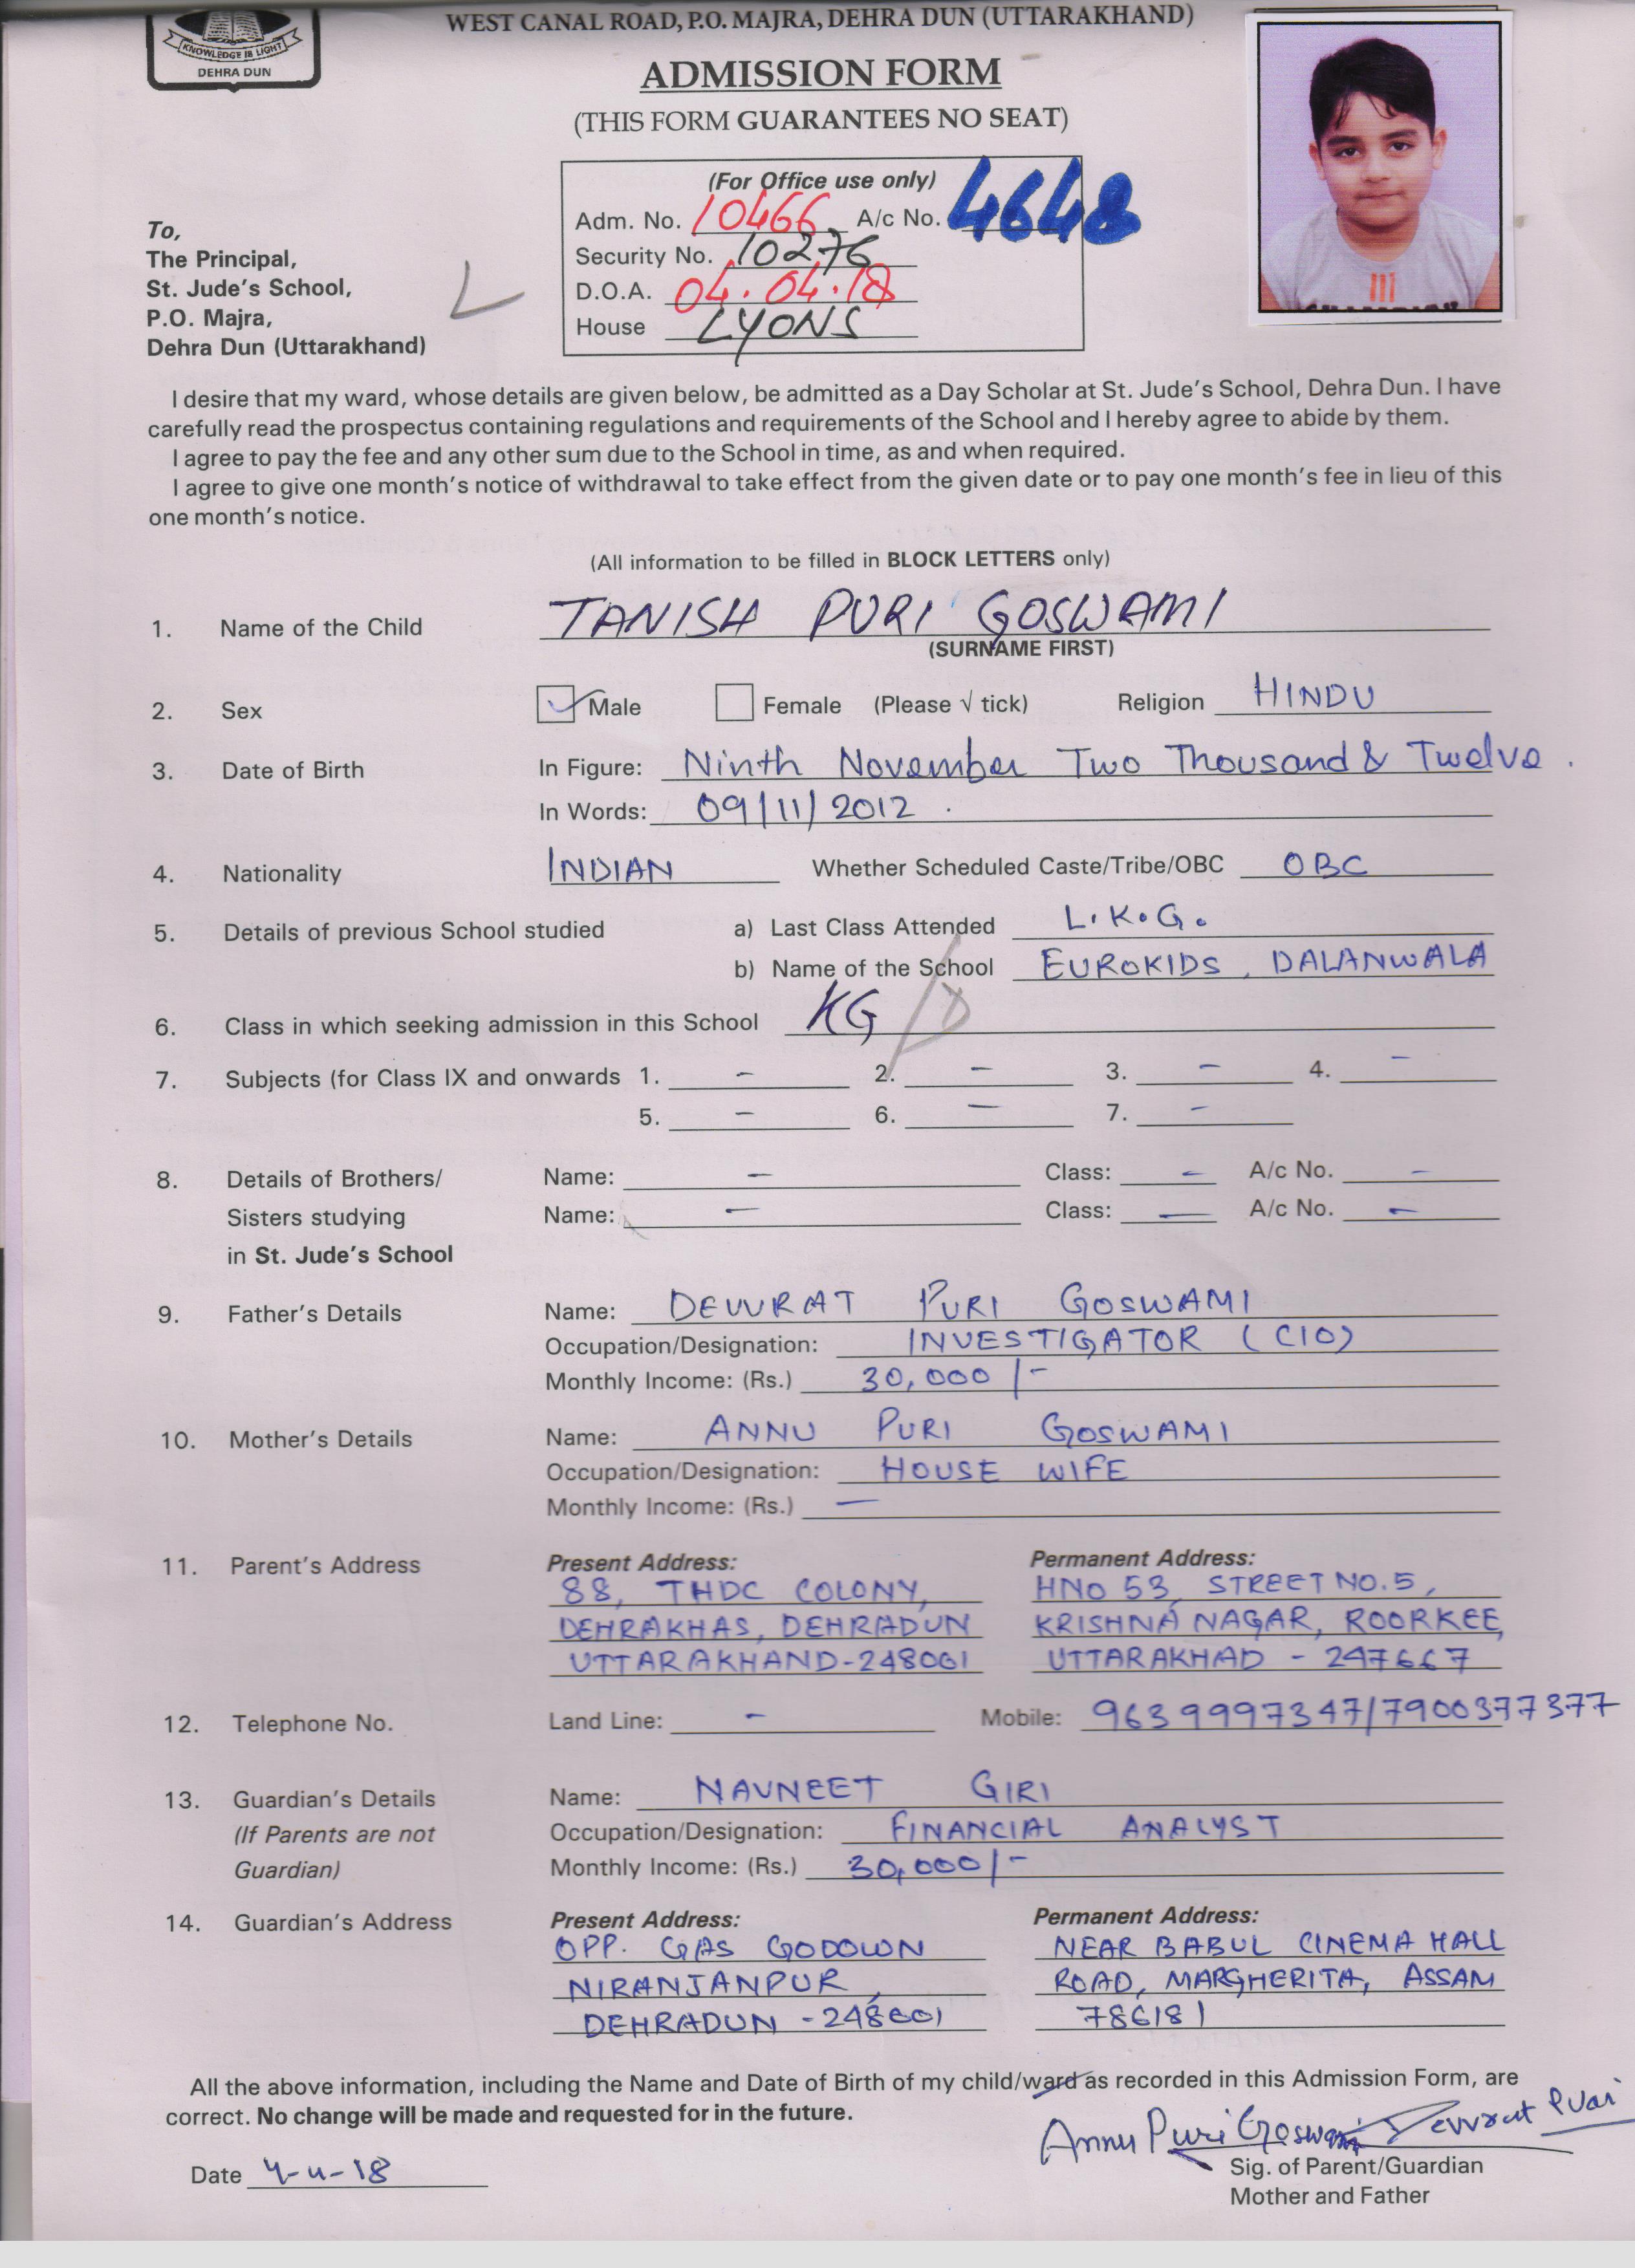 WEST CANAL ROAD, P.O. MAJRA, DEHRA DUN (UTTARAKHAND)
KNOWLEDGE IS LIGHT
DEHRA DUN
ADMISSION FORM
(THIS FORM GUARANTEES NO SEAT)
(For Office use only)
Adm. No. 10466 A/c No. 4648
Security No. 10276
D.O.A. 04.04.18
House LYONS
To,
The Principal,
St. Jude's School,
P.O. Majra,
Dehra Dun (Uttarakhand)
I desire that my ward, whose details are given below, be admitted as a Day Scholar at St. Jude's School, Dehra Dun. I have
carefully read the prospectus containing regulations and requirements of the School and I hereby agree to abide by them.
I agree to pay the fee and any other sum due to the School in time, as and when required.
I agree to give one month's notice of withdrawal to take effect from the given date or to pay one month's fee in lieu of this
one month's notice.
(All information to be filled in BLOCK LETTERS only)
1. Name of the Child TANISH PURI GOSWAMI
(SURNAME FIRST)
2. Sex ✓ Male Female (Please √ tick) Religion HINDU
3. Date of Birth In Figure: Ninth November Two Thousand & Twelve.
In Words: 09/11/2012.
4. Nationality INDIAN Whether Scheduled Caste/Tribe/OBC OBC
5. Details of previous School studied a) Last Class Attended L.K.G.
b) Name of the School EUROKIDS, DALANWALA
6. Class in which seeking admission in this School KG / D
7. Subjects (for Class IX and onwards 1. - 2. - 3. - 4. -
5. - 6. - 7. -
8. Details of Brothers/ Name: - Class: - A/c No. -
Sisters studying Name: - Class: - A/c No. -
in St. Jude's School
9. Father's Details Name: DEVVRAT PURI GOSWAMI
Occupation/Designation: INVESTIGATOR (CIO)
Monthly Income: (Rs.) 30,000/-
10. Mother's Details Name: ANNU PURI GOSWAMI
Occupation/Designation: HOUSE WIFE
Monthly Income: (Rs.) -
11. Parent's Address Present Address: Permanent Address:
88, THDC COLONY, HNO 53, STREET NO.5,
DEHRAKHAS, DEHRADUN KRISHNA NAGAR, ROORKEE,
UTTARAKHAND-248001 UTTARAKHAD - 247667
12. Telephone No. Land Line: - Mobile: 9639997347/7900377377
13. Guardian's Details Name: NAVNEET GIRI
(If Parents are not Occupation/Designation: FINANCIAL ANALYST
Guardian) Monthly Income: (Rs.) 30,000/-
14. Guardian's Address Present Address: Permanent Address:
OPP. GAS GODOWN NEAR BABUL CINEMA HALL
NIRANJANPUR, ROAD, MARGHERITA, ASSAM
DEHRADUN - 248001 786181
All the above information, including the Name and Date of Birth of my child/ward as recorded in this Admission Form, are
correct. No change will be made and requested for in the future.
Annu Puri Goswami Devvrat Puri
Date 4-4-18 Sig. of Parent/Guardian
Mother and Father